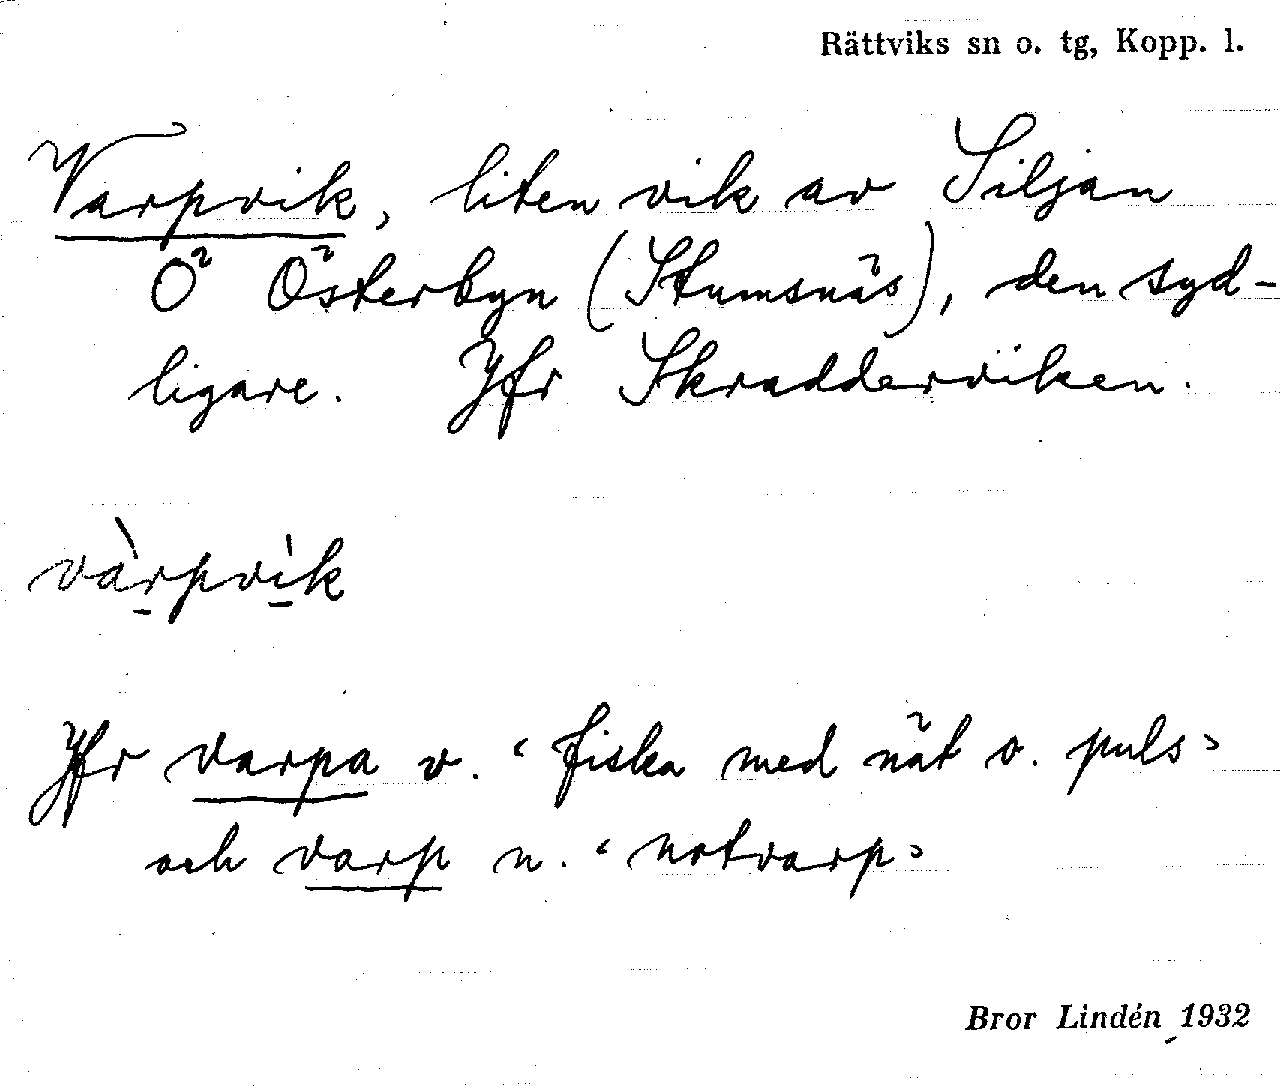 Rättviks sn o. tg, Kopp. l.
Varpvik, liten vik av Siljan
Ö Österbyn (Stumsnäs), den syd-
ligare. Jfr Skradderviken.
vàrpvìk
Jfr varpa v. ‘fiska med nät o. puls’
och varp n. ‘notvarp’
Bror Lindén 1932